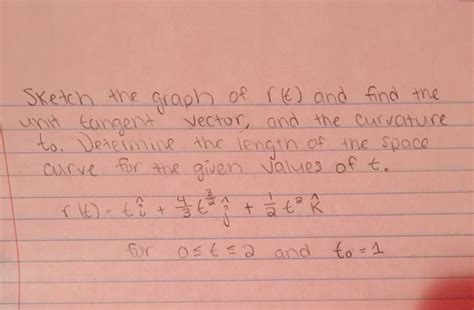 Sketch the graph of r(t) and find the
unit tangent vector, and the curvature
to. Determine the length of the space
curve for the given values of t.
r(t) = t î + 4/3 t^3/2 ĵ + 1/2 t² k̂
for 0 ≤ t ≤ 2 and t₀ = 1